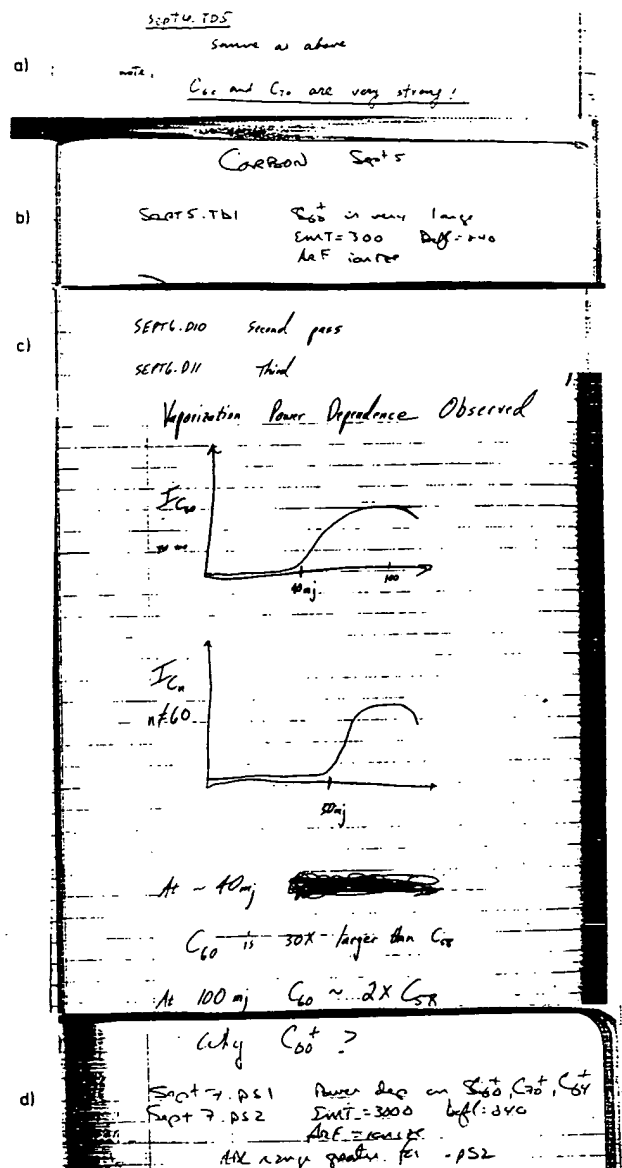 a)
SEPT4.TD5
same as above
note,
C60 and C70 are very strong!
b)
CARBON Sept 5
SEPT5.TD1 C60+ is very large
EMT=300 Defl=240
ArF ionize
c)
SEPT6.D10 Second pass
SEPT6.D11 Third
Vaporization Power Dependence Observed
I C60
40mj 100
I Cn
n≠60
50mj
At ~ 40mj
C60 is 30X larger than C58
At 100 mj C60 ~ 2X C58
d)
Why C60+ ?
Sept 7.PS1 Power dep on C60+, C70+, C64+
Sept 7.PS2 EMT=3000 Defl=240
ArF = ionize
range greater -PS2